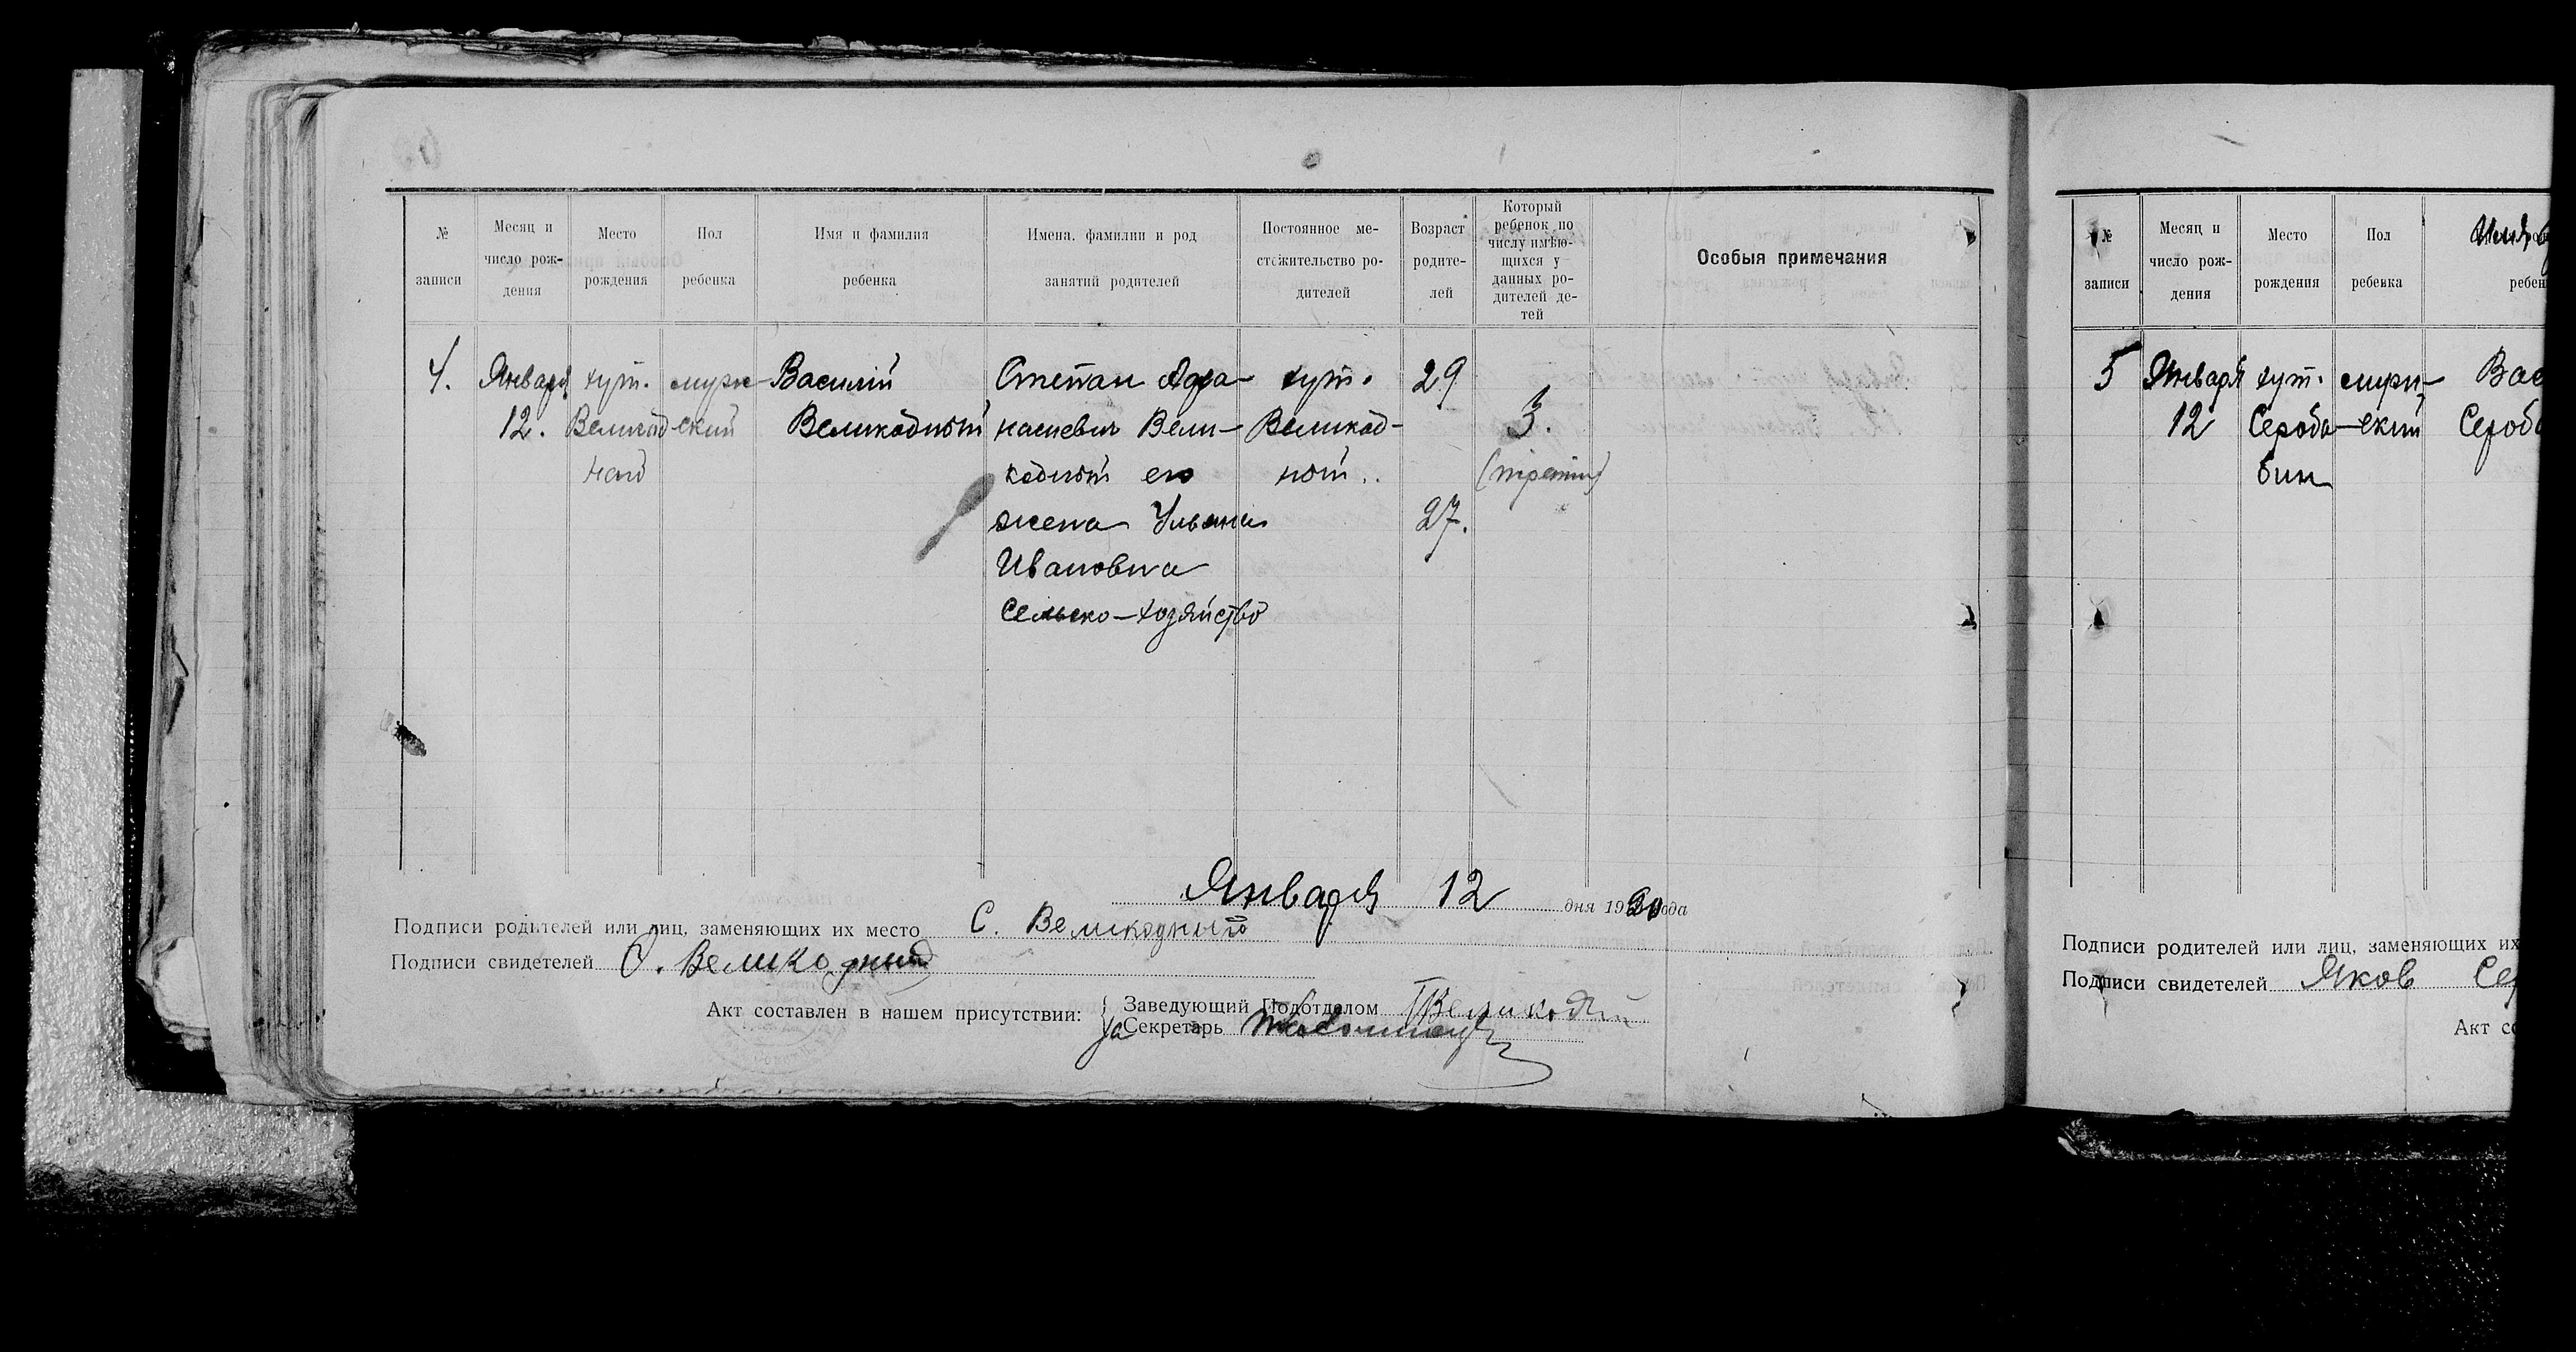 № записи
Месяц и число рождения
Место рождения
Пол ребенка
Имя и фамилия ребенка
Имена, фамилии и род занятий родителей
Постоянное местожительство родителей
Возраст родителей
Который ребенок по числу имѣющихся у данных родителей детей
Особыя примечания
4. Января хут. мужс- Василій Степан Афа- хут. 29
12. Великод ский Великодный насиевич Вели- Великод- 3.
ной кодный его ной.. (третий)
жена Ульяна 27.
Ивановна
Сельско-хозяйство
Января 12 дня 1920 года
Подписи родителей или лиц, заменяющих их место С. Великодный
Подписи свидетелей О. Великодный
Акт составлен в нашем присутствии:
Заведующий Подотделом
за Секретарь
№ записи
Месяц и число рождения
Место рождения
Пол ребенка
ребен
5 Января хут. мужс- Вас
12 Сероба- ский Сероб
бин
Подписи родителей или лиц, заменяющих их
Подписи свидетелей Яков Сер
Акт со